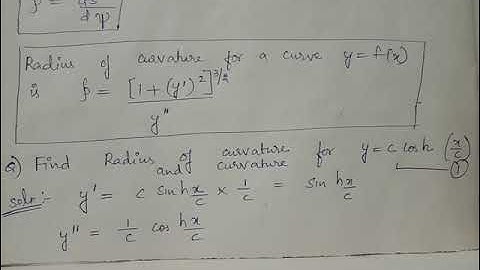 ρ = ds/dψ
Radius of curvature for a curve y = f(x)
is ρ = [1 + (y')²]^3/2 / y''
Q) Find Radius of curvature and curvature for y = c cosh (x/c) ①
soln:- y' = c sinh x/c × 1/c = sinh x/c
y'' = 1/c cosh x/c